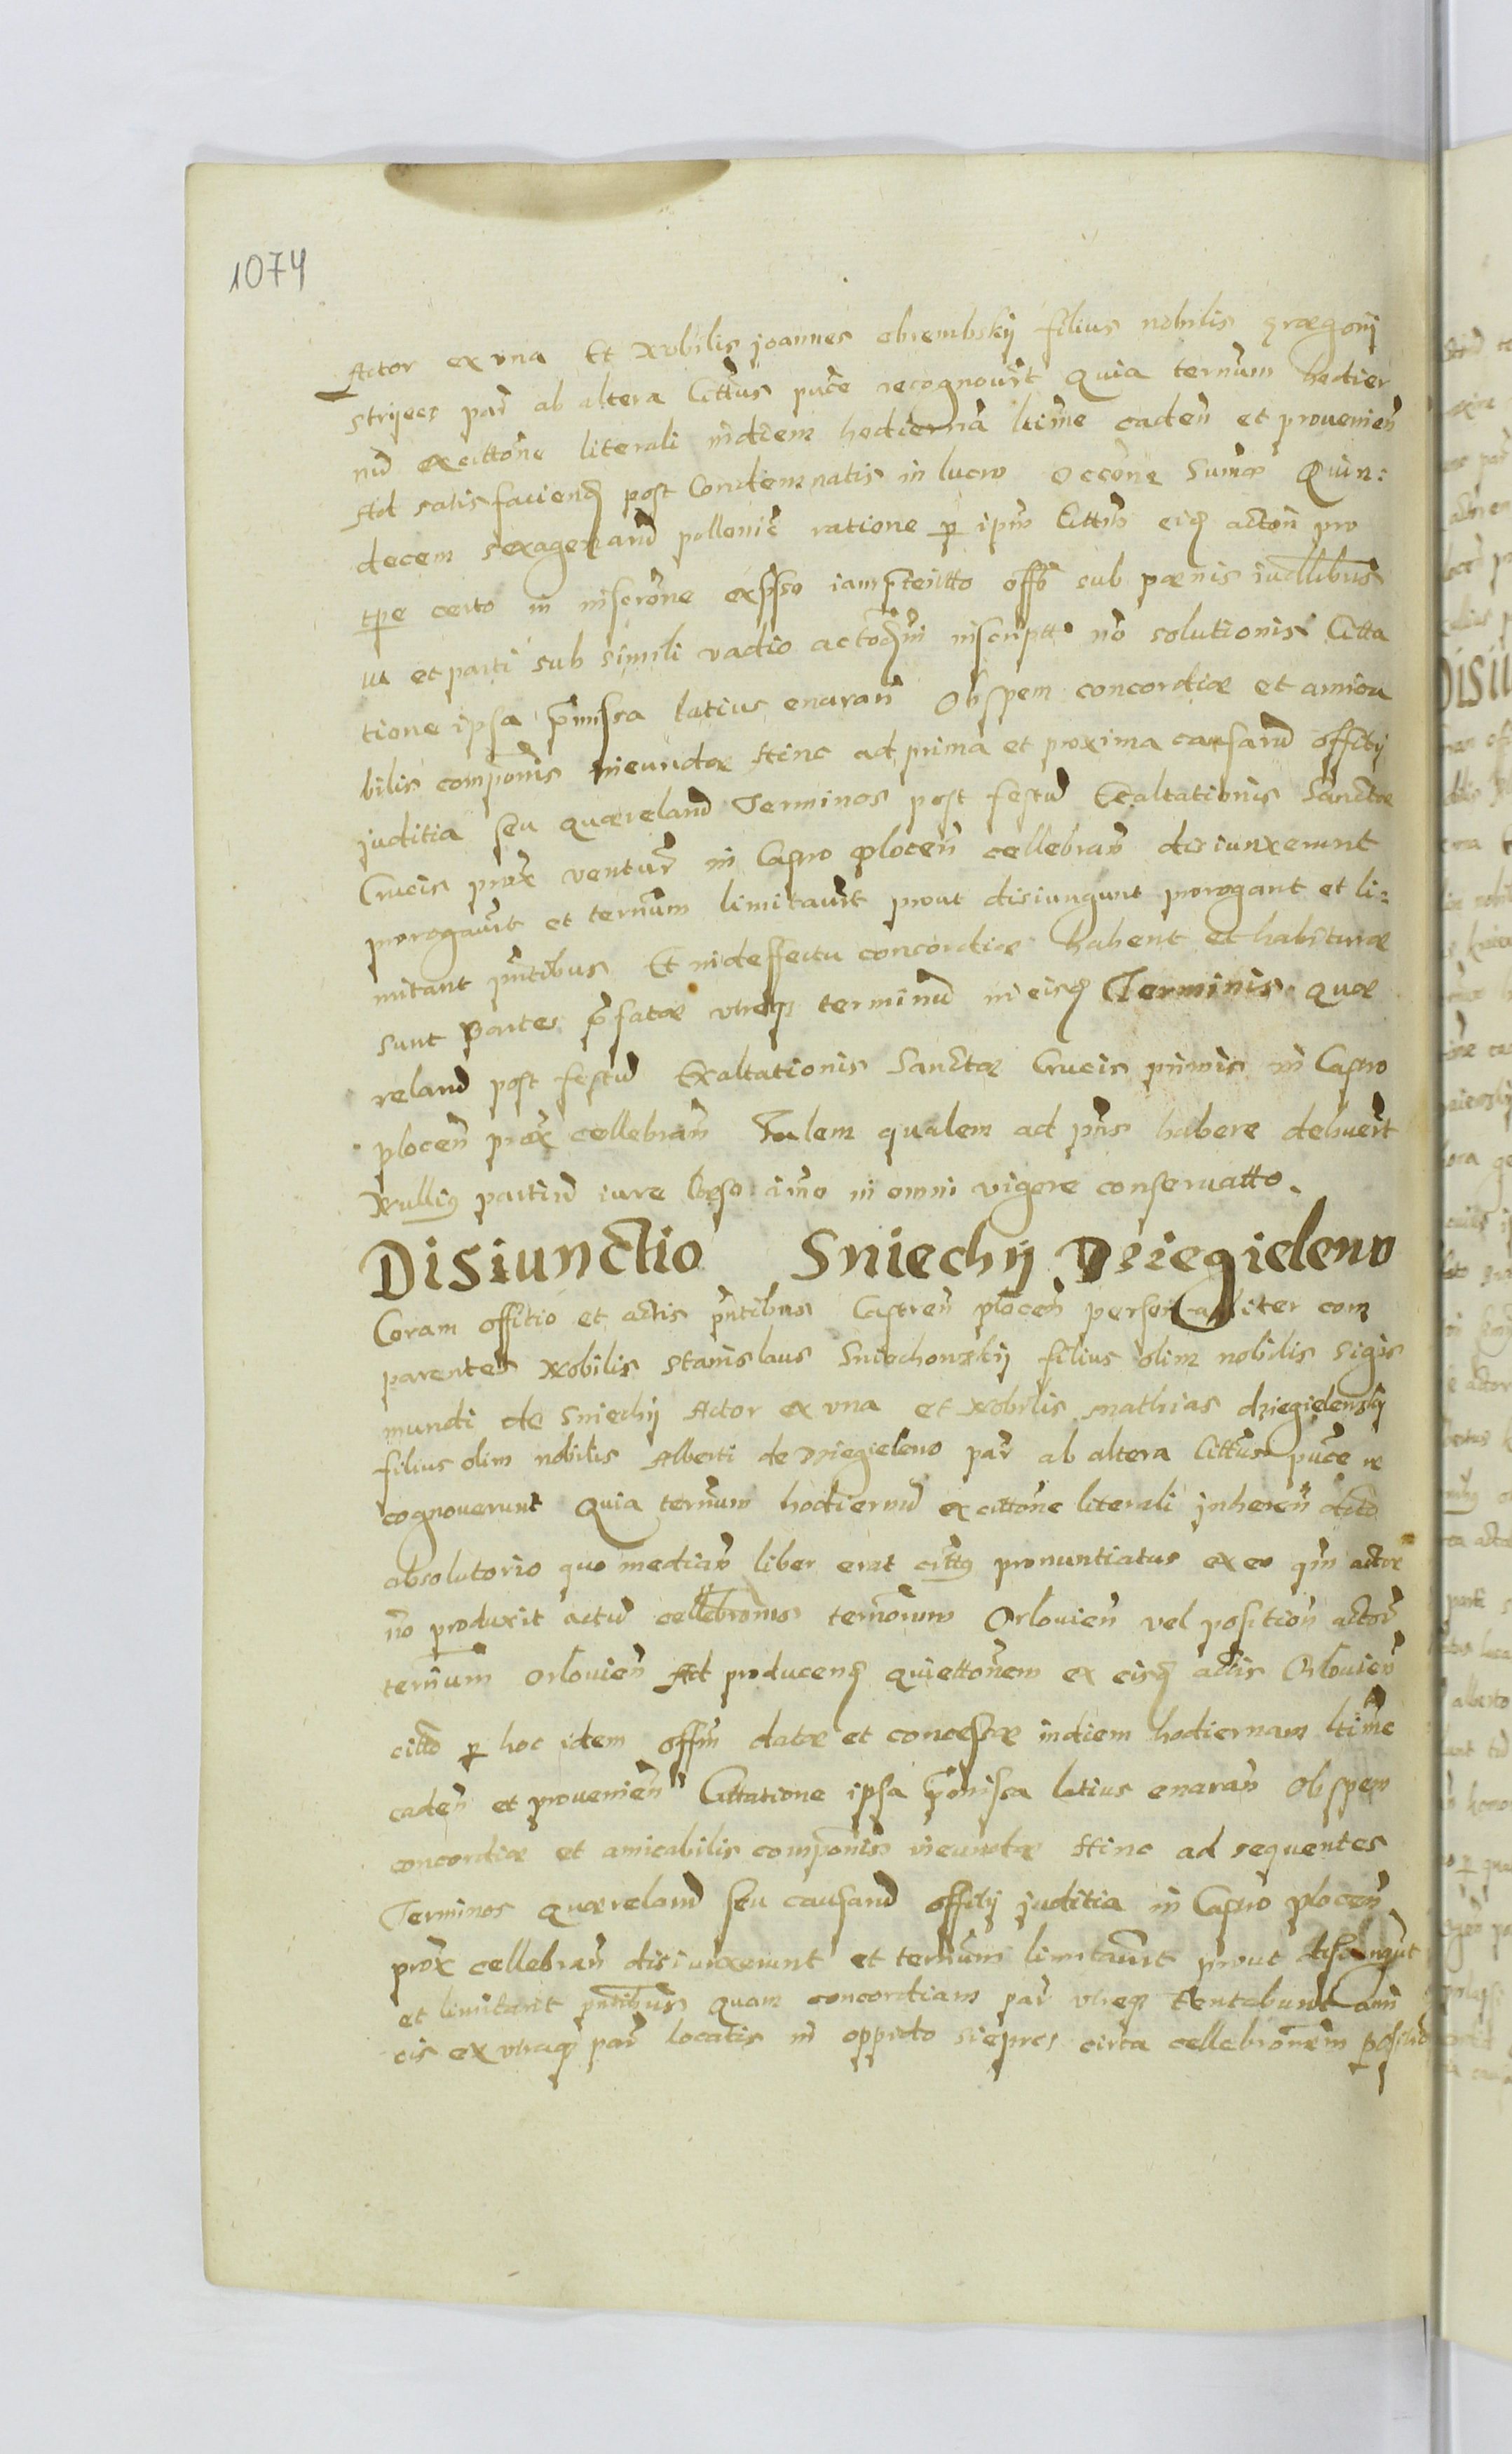 1074
Actor ex una Et Nobilis joannes chrembskij filius nobilis grægorij
strijecz par ab altera Cittus puce recognouert Quia ternum hodier
nu ex cittone literali indiem hodierna ltime caden et prouenien
Ad satisfaciend post Condemnatis in lucro occone Sumæ Quin:
decem sexagenaru pollonic ratione p ipm Cittm eid acton pro
tpe certo in inscrone exsso iam offo sub pænis
et parti sub simili vadio inscriptt no solutionis Citta
tione ipsa pmissa latius enaran Ob spem concordiæ et amica
bilis componis ineundæ Hinc ad prima et proxima causaru offitij
juditia seu quærelaru Terminos post festu Exaltationis Sanctæ
Crucis prox ventur in Castro plocen cellebran disiunxerunt
prorogauert et ternum limitauert prout disiungunt prorogant et li:
mitant pntibus Et in deffectu concordiæ habent et habituræ
sunt Partes pfatæ utreq terminu in eisd Terminis quæ
relaru post festu Exaltationis Sanctæ Crucis primis in Castro
plocen prox cellebran Talem qualem ad pns habere debuert
Nullig partiu iure læso imo in omni vigore conseruatto.
Disiunctio Sniechij Dziegieleno
Coram offitio et actis pntibus Castren plocen personaliter com
parentes Nobilis stanislaus Sniechowskij filius olim nobilis Sigis
mundi de Sniechij Actor ex una et Nobilis mathias dziegielenskij
filius olim nobilis Alberti de Dziegieleno par ab altera Cittus puce re
cognouerunt Quia ternum hodiernu ex cittone literali inheren
absolutorio quo median liber erat cittg pronuntiatus ex eo qm actor
no produxit actu cellebronis ternorum Orlouien vel position actor
ternum Orlouien Ad producend quiettonem ex eisd actis Orlouien
citto p hoc idem offm datæ et concessæ indiem hodiernam ltime
caden et prouenien Cittatione ipsa pmissa latius enaran Ob spem
concordiæ et amicabilis componis ineundæ Hinc ad sequentes
Terminos quærelaru seu causaru offitij juditia in Castro plocen
prox cellebran disiunxerunt et ternum limitauert prout disiungut
et limitant pntibus Quam concordiam par utreq tentabunt ami
cis ex utraq par locatis in oppido sieprcz circa cellebronem